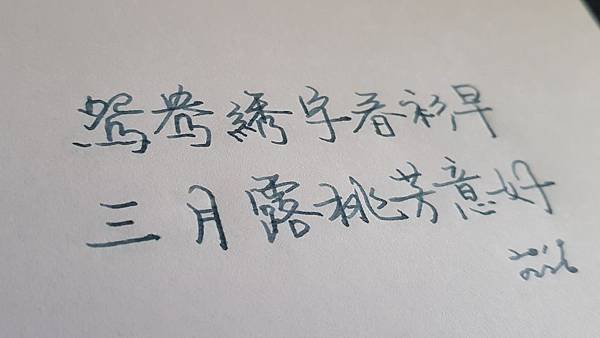 鴛鴦綉字春衫早
三月露桃芳意好
2019
0226